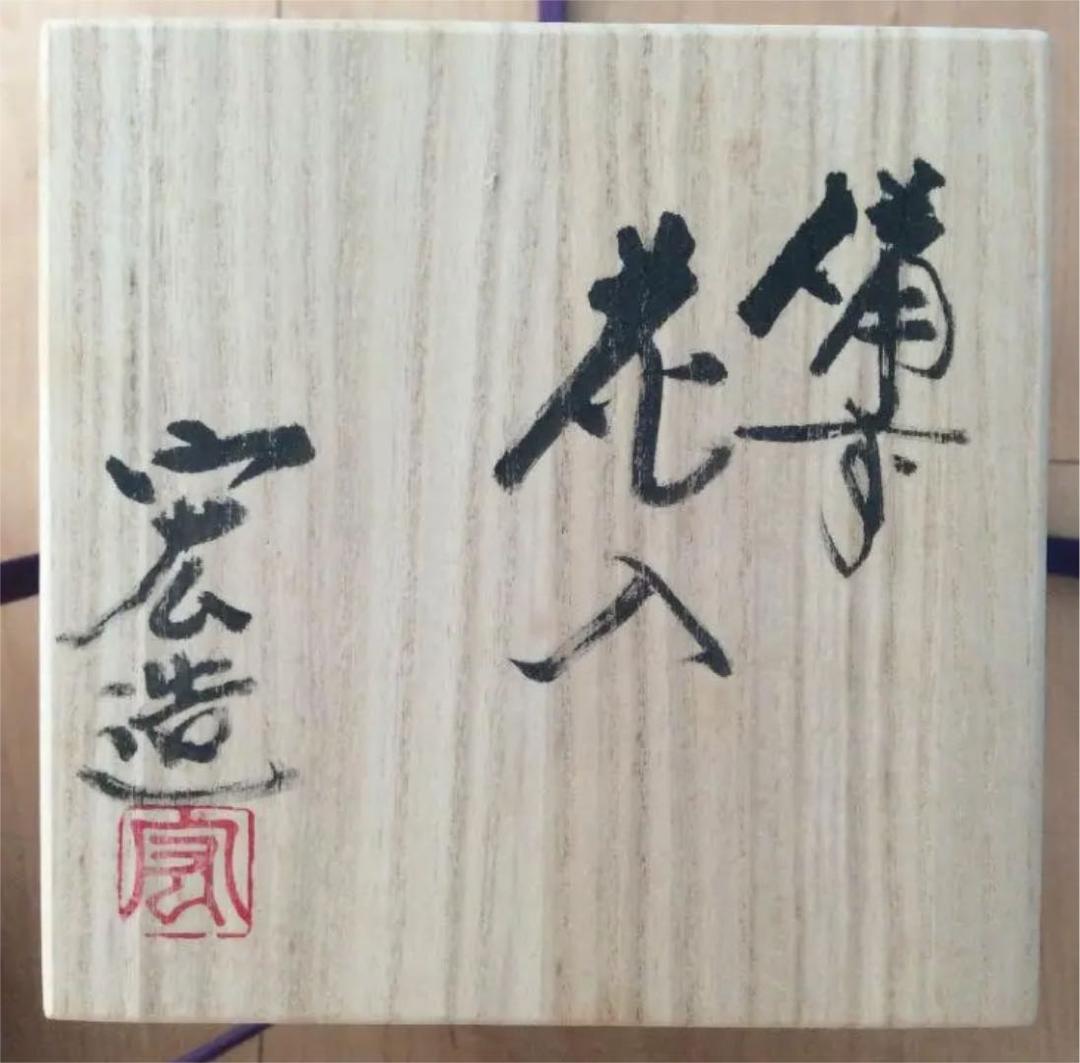 備前
花入
宏造
宏